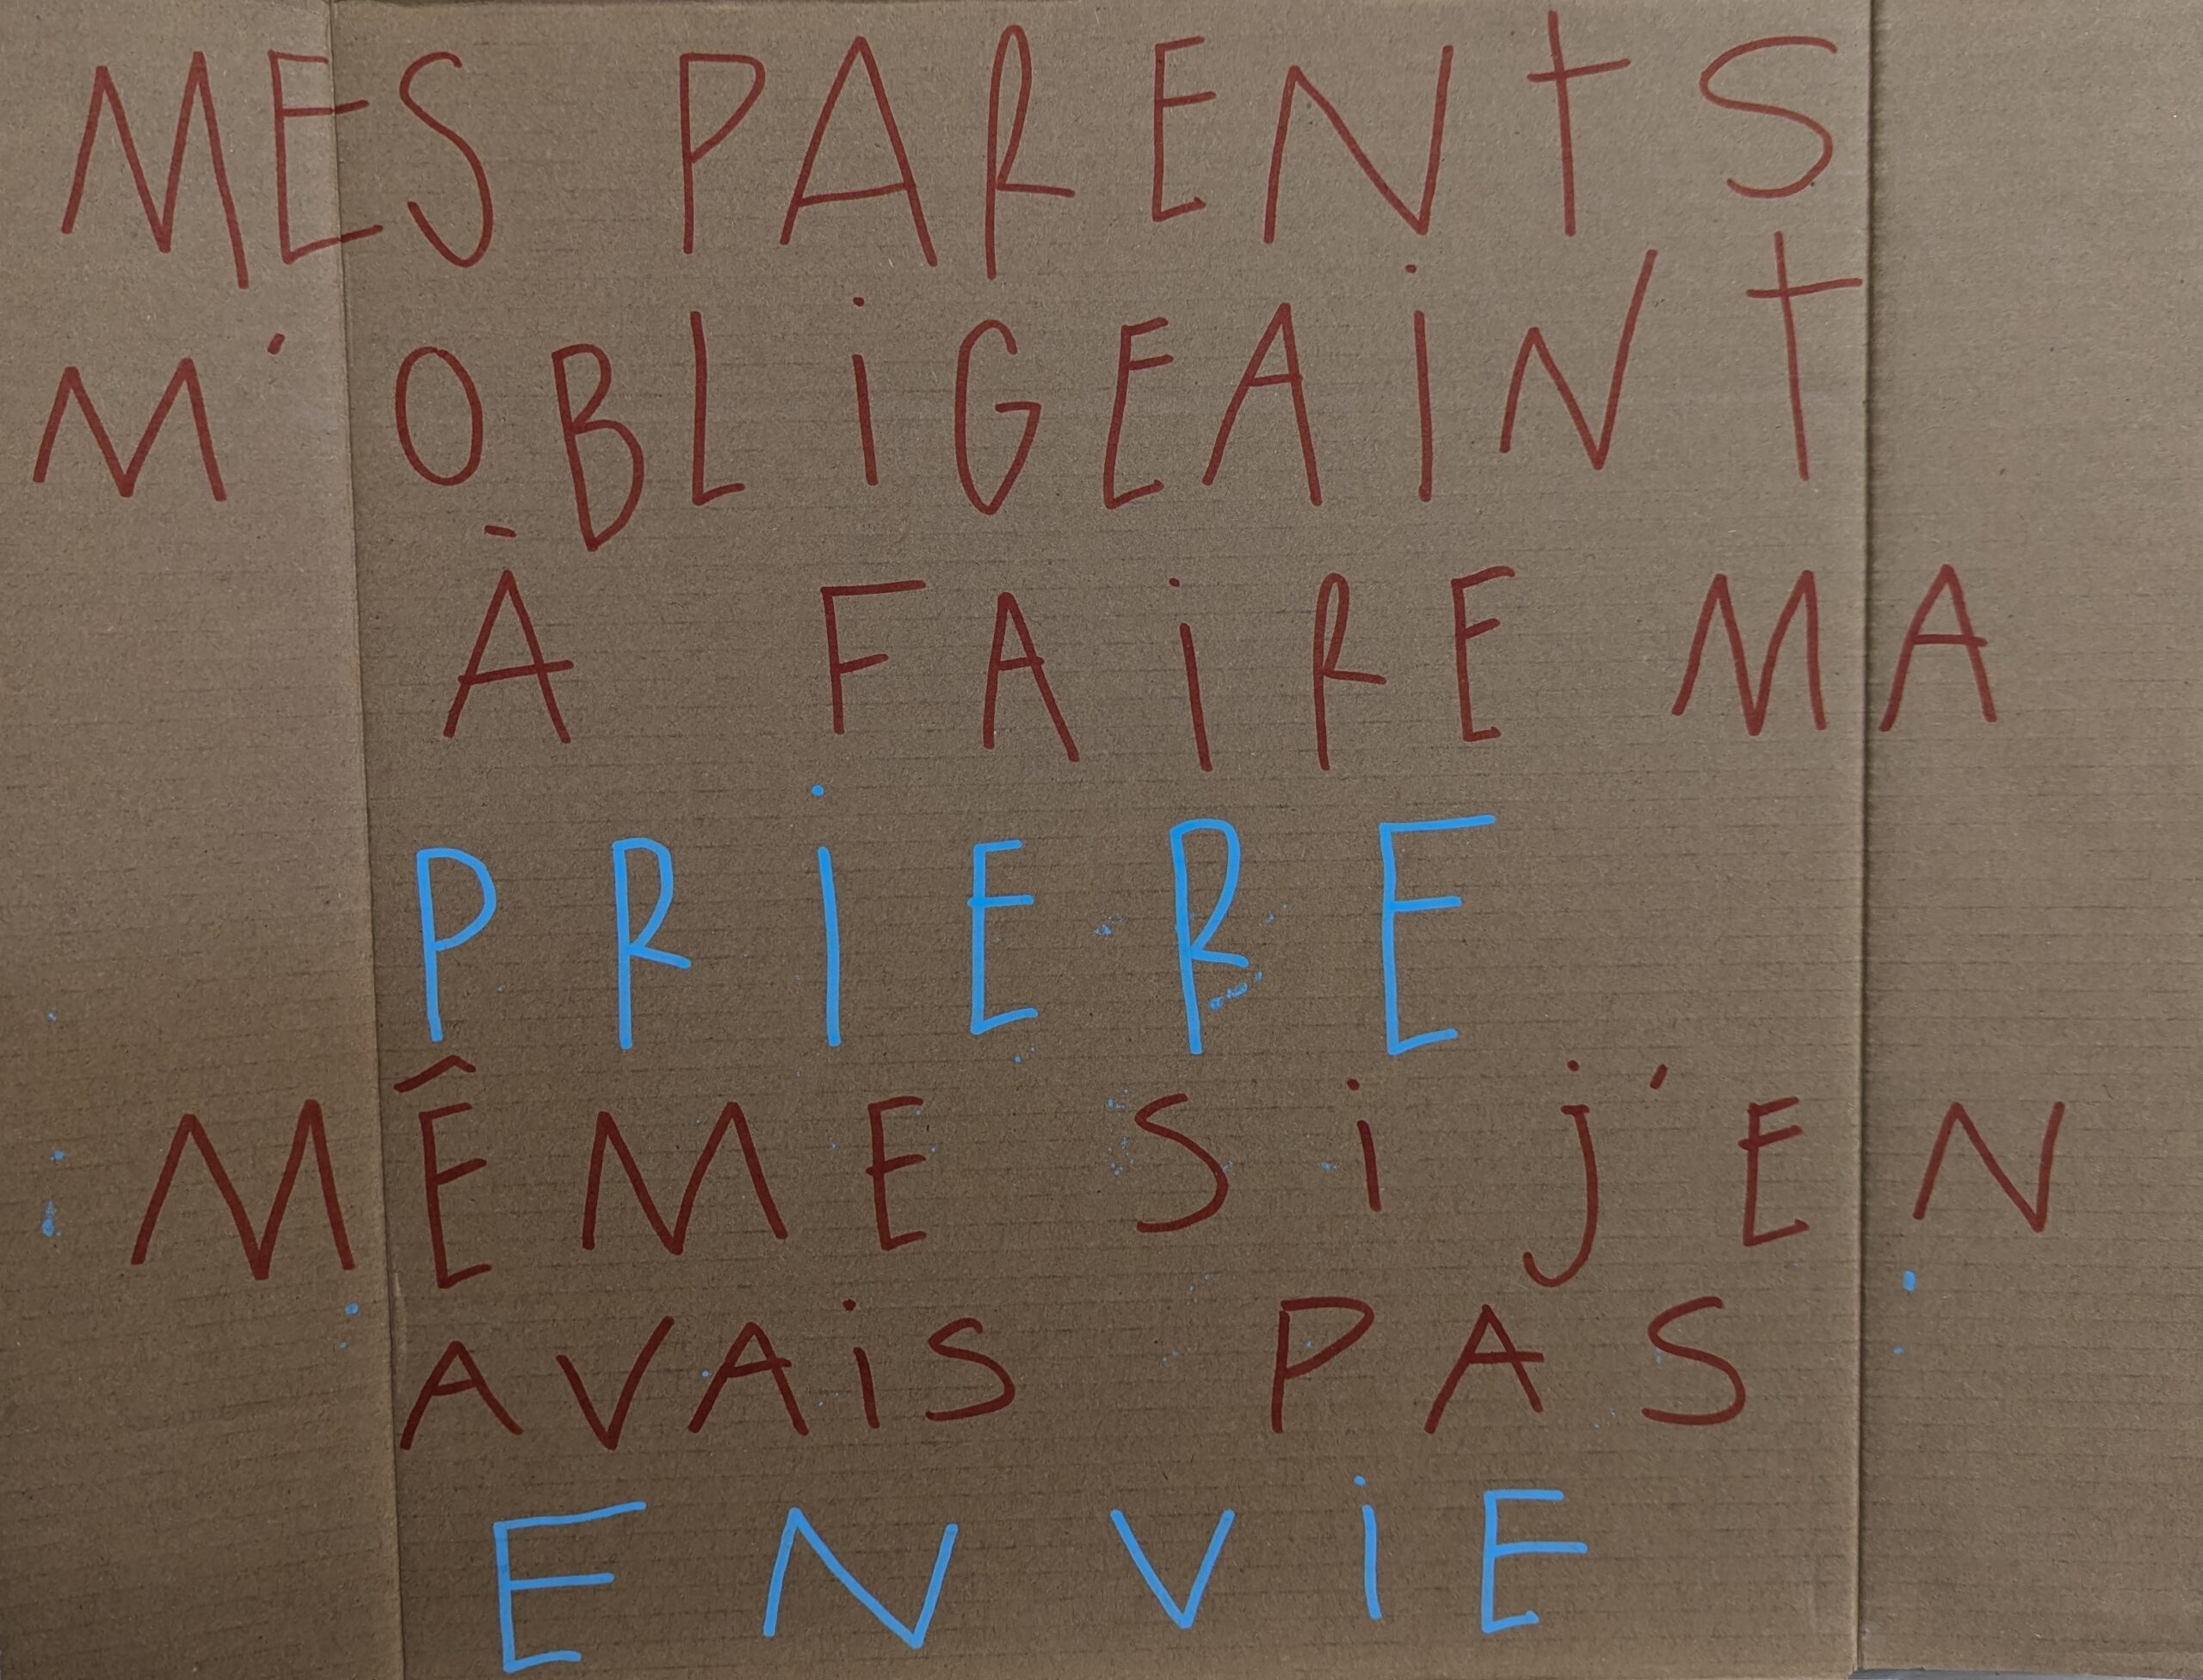 MES PARENTS
M'OBLIGEAINT
À FAIRE MA
PRIERE
MÊME SI J'EN
AVAIS PAS
ENVIE